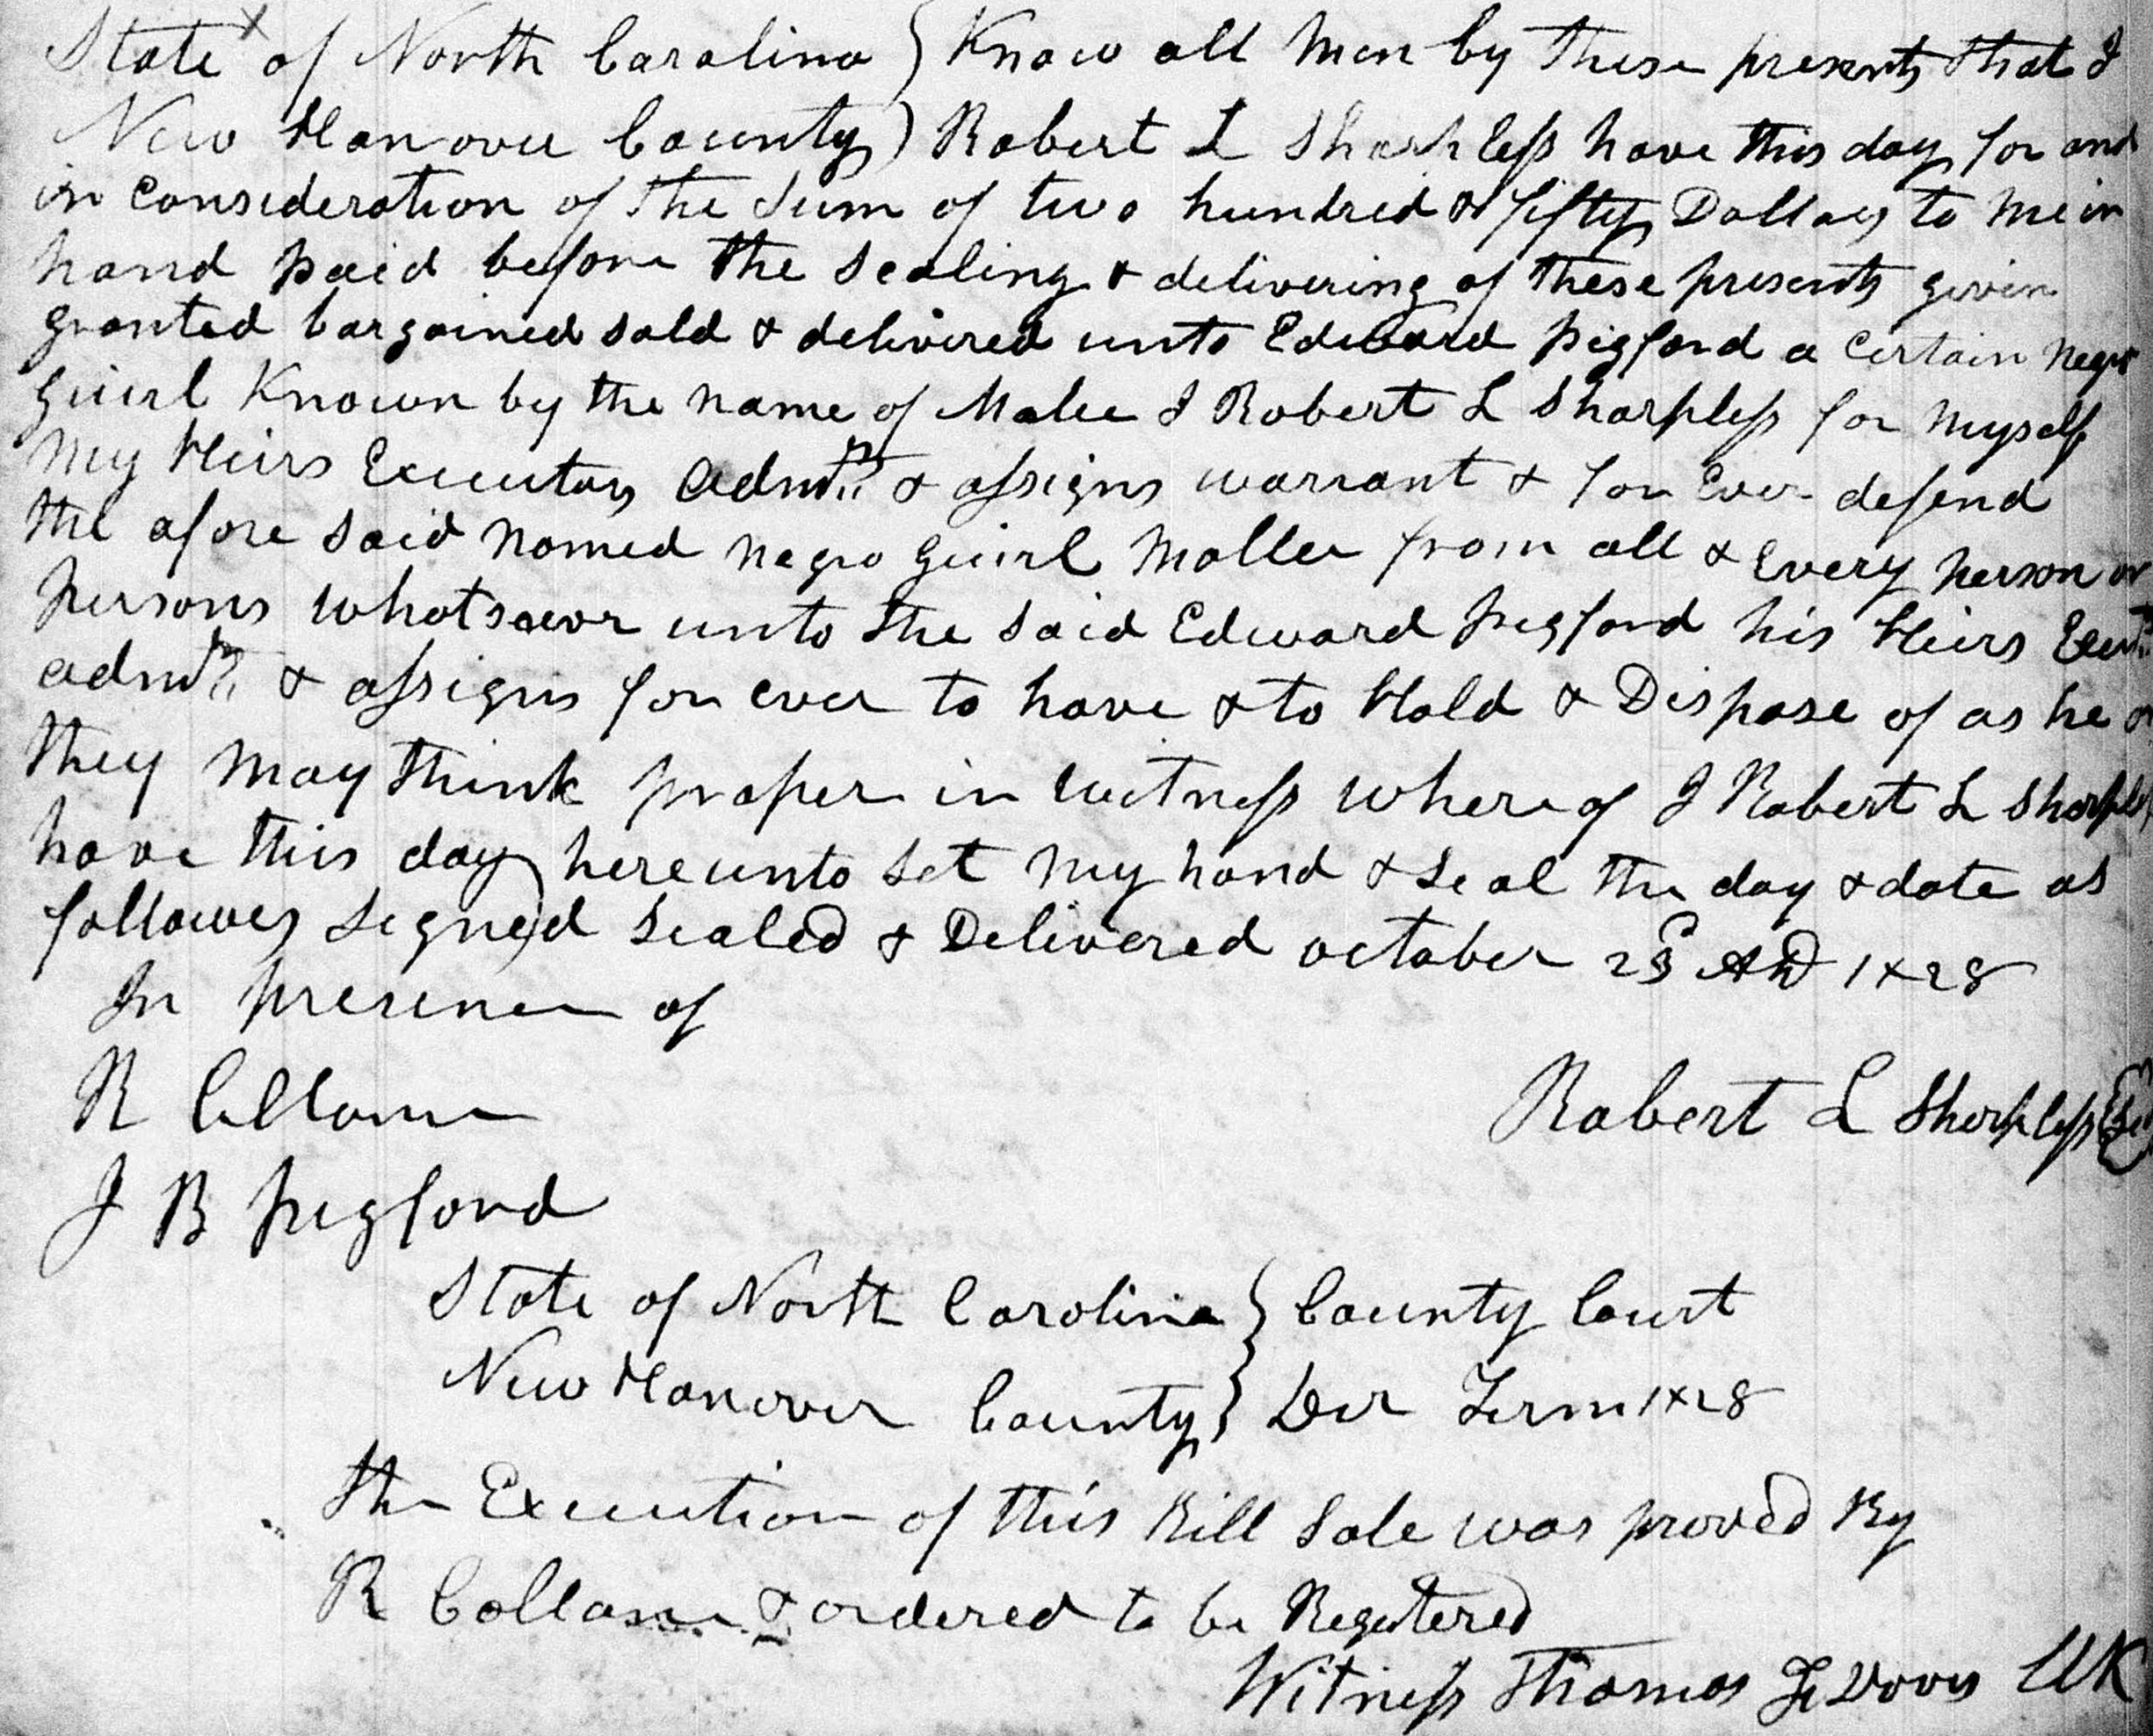 State of North Carolina } Know all Men by these presents that I
New Hanover County } Robert L Sharpless have this day for and
in Consideration of the Sum of two hundred & fifty Dollars to me in
hand paid before the Sealing & delivering of these presents given
granted bargained sold & delivered unto Edward pigford a Certain negro
Guirl Known by the name of Malee I Robert L Sharpless for myself
my Heirs Executors Admrs & assigns warrant & for Ever defend
the afore said named negro Guirl Mollee from all & Every person or
persons whatsoever unto the said Edward pigford his Heirs
admrs & assigns for ever to have & to Hold & Dispose of as he or
they may think proper in witness where of I Robert L Sharpless
have this day hereunto set my hand & Seal the day & date as
followes Signed Sealed & Delivered october 23 AD 1828
In presence of
R
Robert L Sharpless
J B pigford
State of North Carolina } County Court
New Hanover County } Term 1828
the Execution of this Bill Sale was proved By
R & ordered to be Registered
Witness Thomas Clk